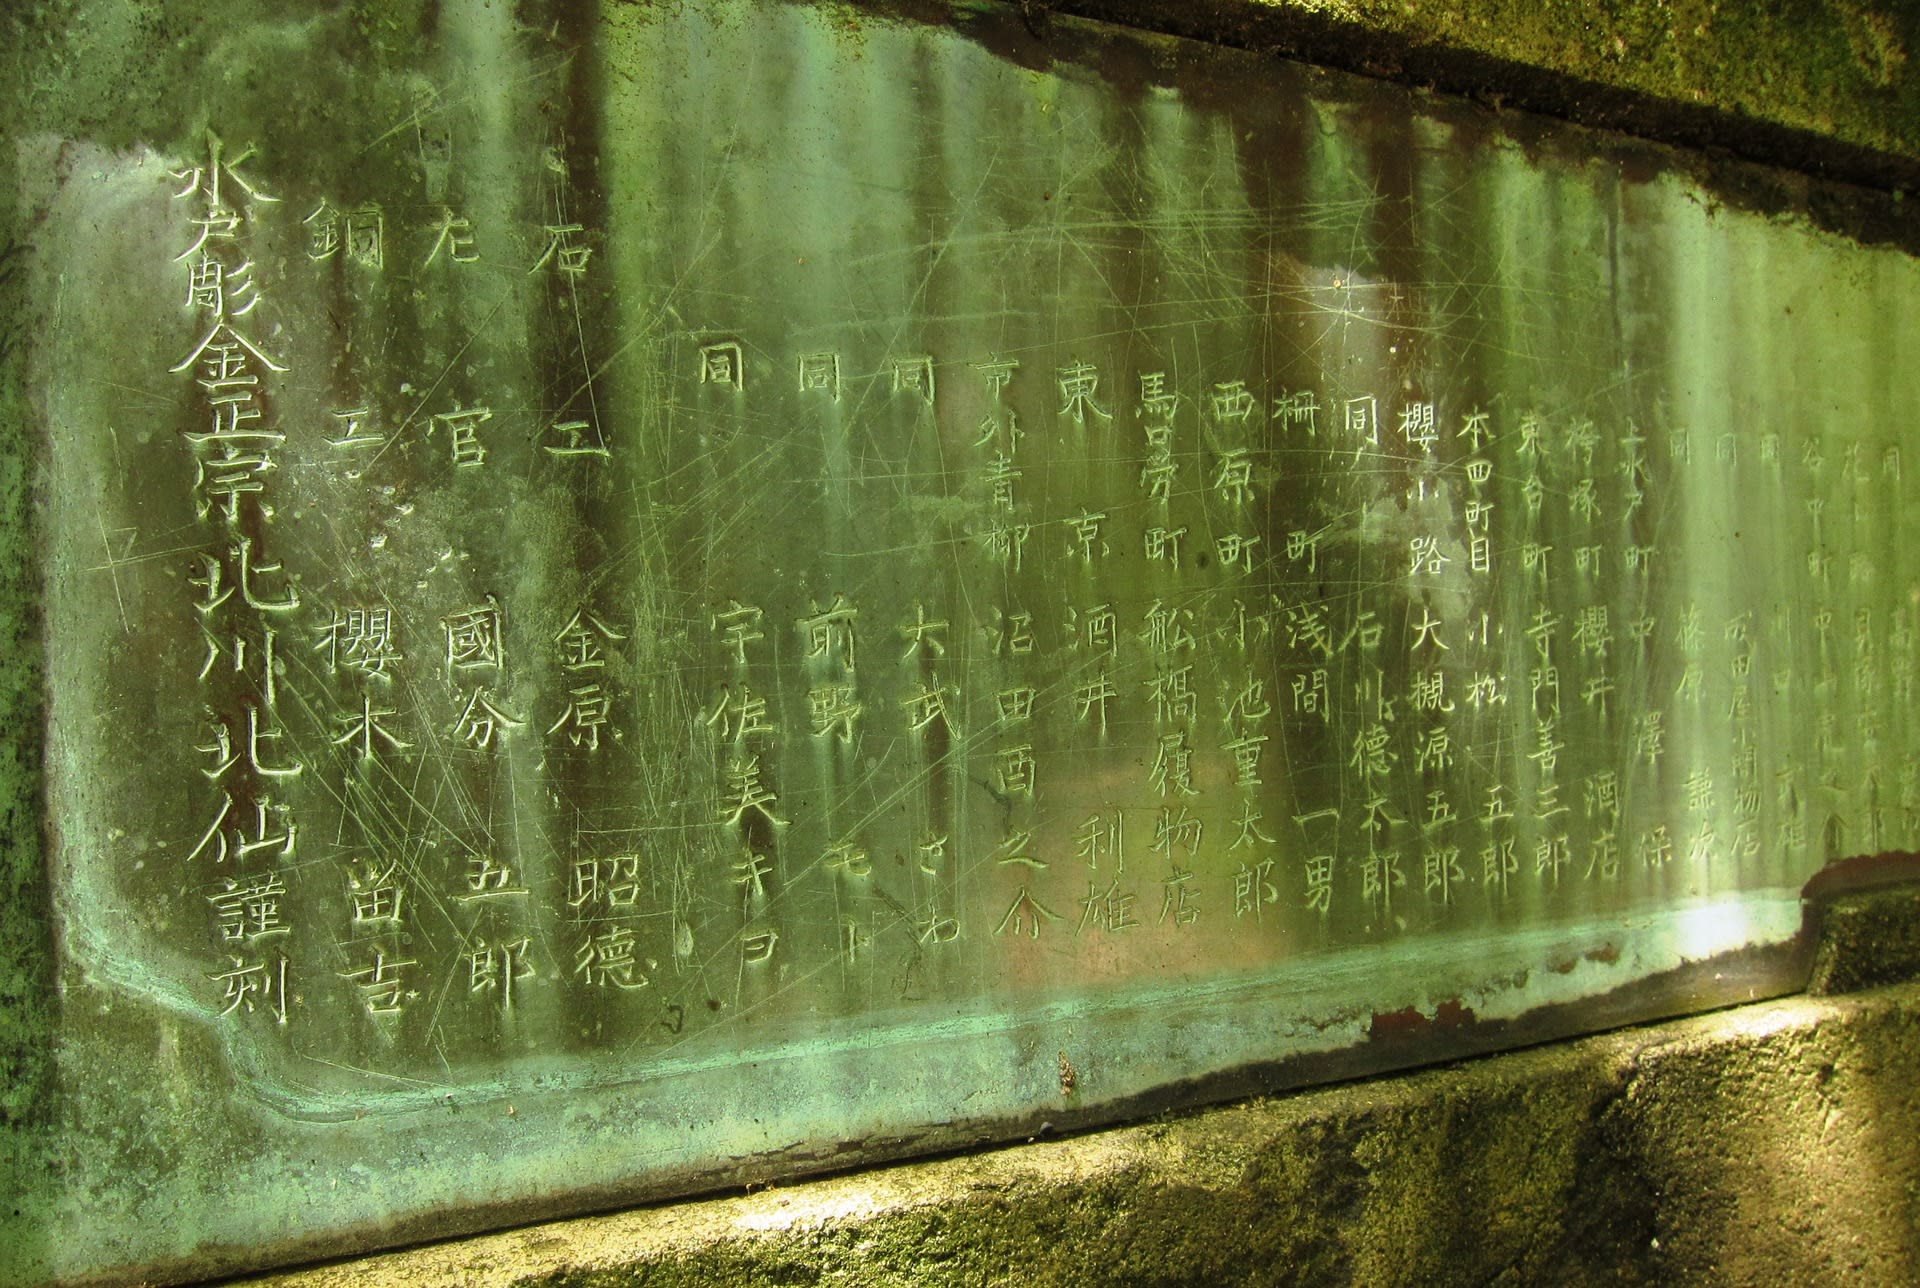 同
谷中町中
同 川口
同 田屋小間物店
同 篠原 謙次
上水戸町 中澤 保
袴塚町 櫻井酒店
東台町 寺門善三郎
本四町目 小松五郎
櫻小路 大槻源五郎
同 石川德太郎
柵町 浅間一男
西原町 小池重太郎
馬労町 船橋履物店
東京 酒井利雄
市外青柳 沼田酉之介
同 大武さわ
同 前野モト
同 宇佐美キヨ
石工 金原昭德
左官 國分五郎
銅工 櫻木留吉
水戸彫金正宗北川北仙謹刻